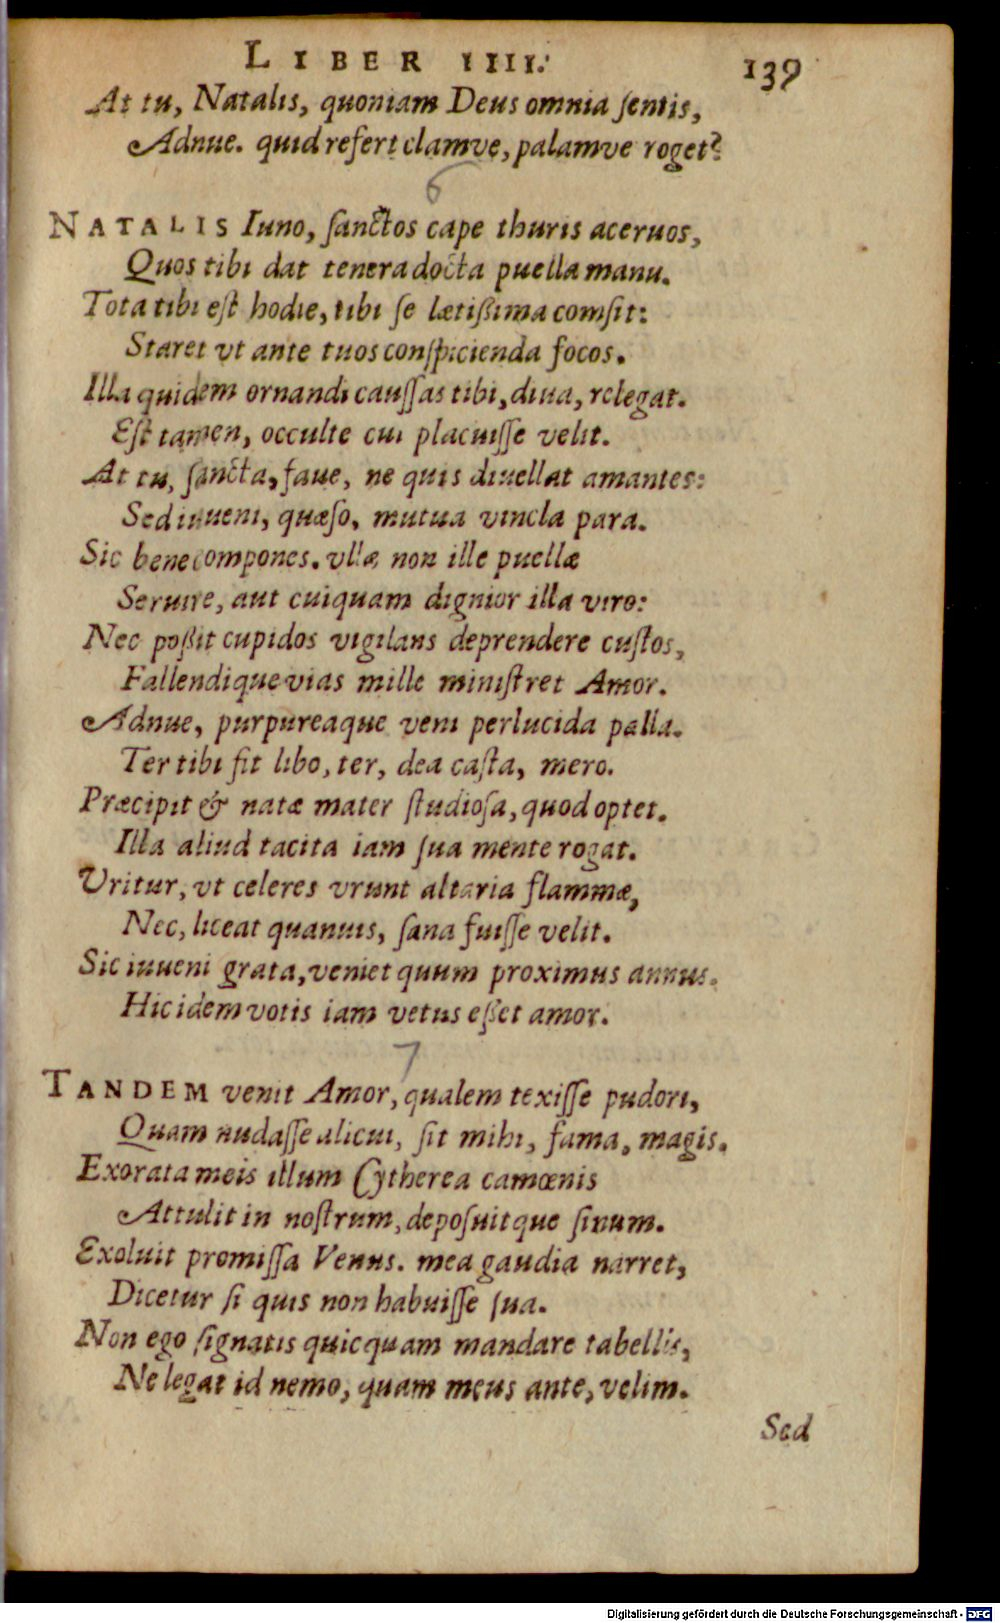 LIBER IIII.
139
At tu, Natalis, quoniam Deus omnia ſentis,
Adnue. quid refert clamve, palamve roget?
6
NATALIS Iuno, ſanctos cape thuris aceruos,
Quos tibi dat tenera docta puella manu.
Tota tibi eſt hodie, tibi ſe lætißima comſit:
Staret vt ante tuos conſpicienda focos.
Illa quidem ornandi cauſſas tibi, diua, relegat.
Eſt tamen, occulte cui placuiſſe velit.
At tu, ſancta, faue, ne quis diuellat amantes:
Sed iuueni, quæſo, mutua vincla para.
Sic bene compones. vllæ non ille puellæ
Seruire, aut cuiquam dignior illa viro:
Nec poßit cupidos vigilans deprendere cuſtos,
Fallendique vias mille miniſtret Amor.
Adnue, purpureaque veni perlucida palla.
Ter tibi fit libo, ter, dea caſta, mero.
Præcipit & natæ mater ſtudioſa, quod optet.
Illa aliud tacita iam ſua mente rogat.
Vritur, vt celeres vrunt altaria flammæ,
Nec, liceat quanuis, ſana fuiſſe velit.
Sic iuueni grata, veniet quum proximus annus.
Hic idem votis iam vetus eſſet amor.
7
TANDEM venit Amor, qualem texiſſe pudori,
Quam nudaſſe alicui, ſit mihi, fama, magis.
Exorata meis illum Cytherea camœnis
Attulit in noſtrum, depoſuitque ſinum.
Exoluit promiſſa Venus. mea gaudia narret,
Dicetur ſi quis non habuiſſe ſua.
Non ego ſignatis quicquam mandare tabellis,
Ne legat id nemo, quam meus ante, velim.
Sed
Digitalisierung gefördert durch die Deutsche Forschungsgemeinschaft - DFG